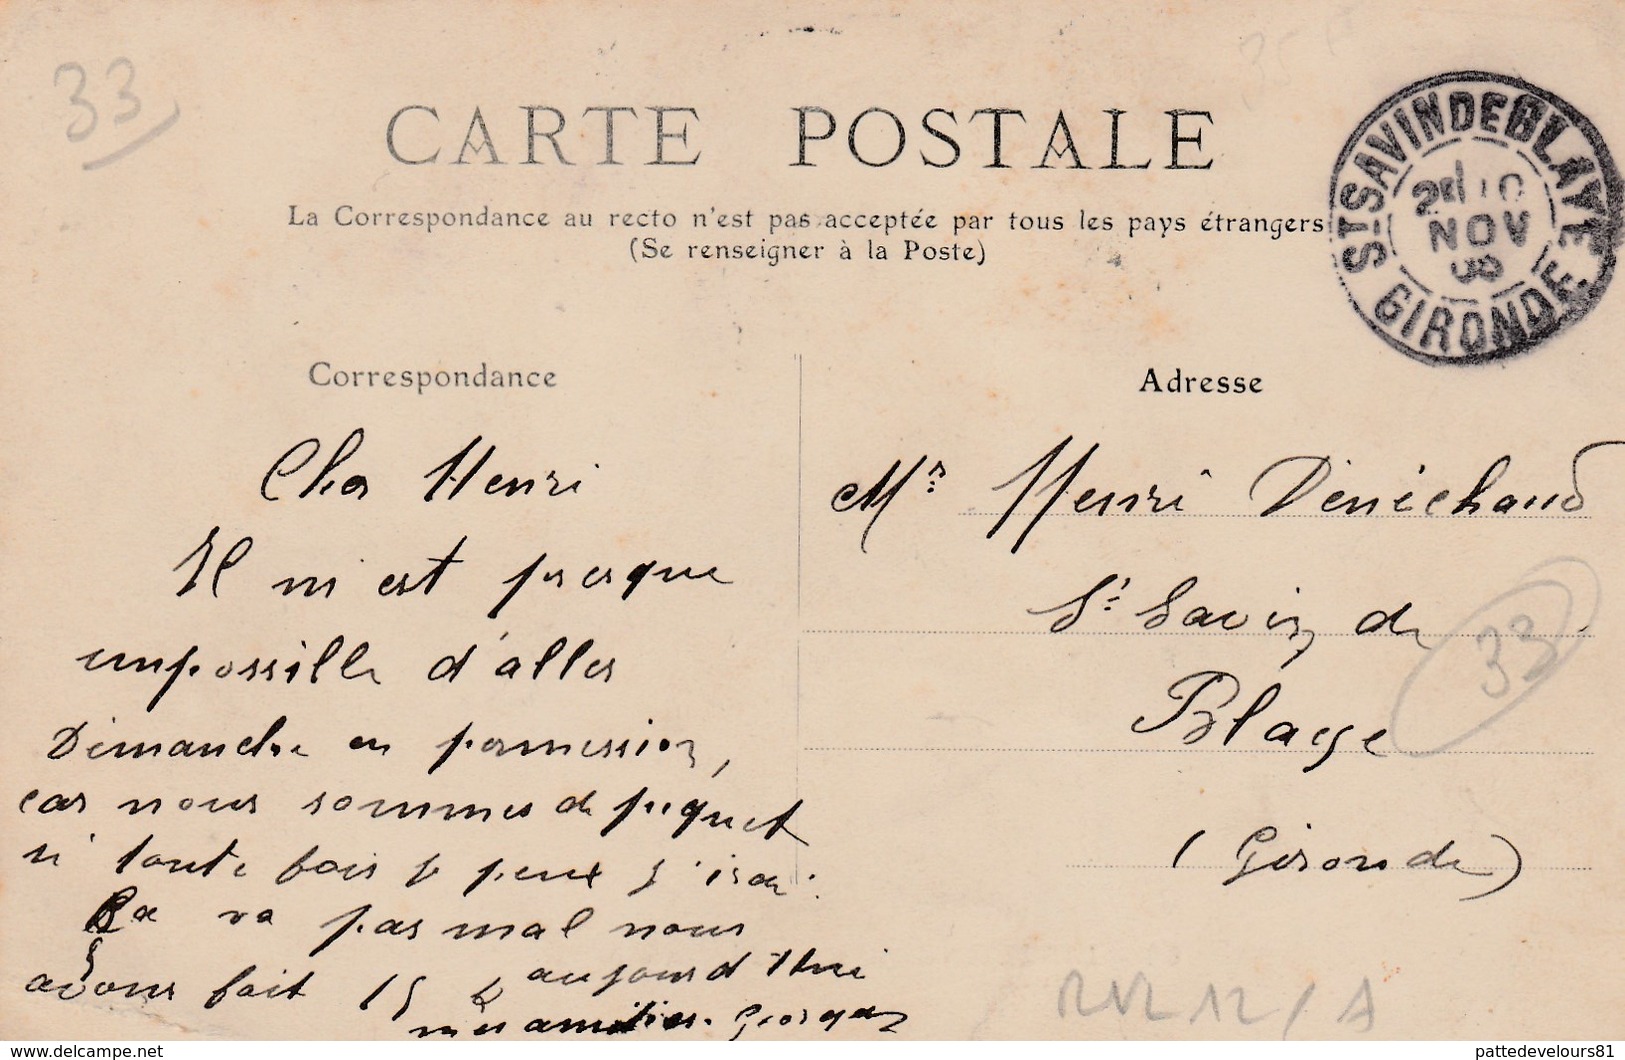 33
CARTE POSTALE
La Correspondance au recto n'est pas acceptée par tous les pays étrangers
(Se renseigner à la Poste)
ST SAVIN DE BLAYE
10
NOV
GIRONDE
Correspondance
Cher Henri
Il m'est presque
impossible d'aller
Dimanche en permission,
car nous sommes de piquet
si toute fois je peux j'irai.
Ça va pas mal nous
avons fait 15 K aujourd'hui
mes amitiés. Georges
Adresse
Mr Henri Dénéchaud
St Savin de
Blaye
(Gironde)
33
pattedevelours81